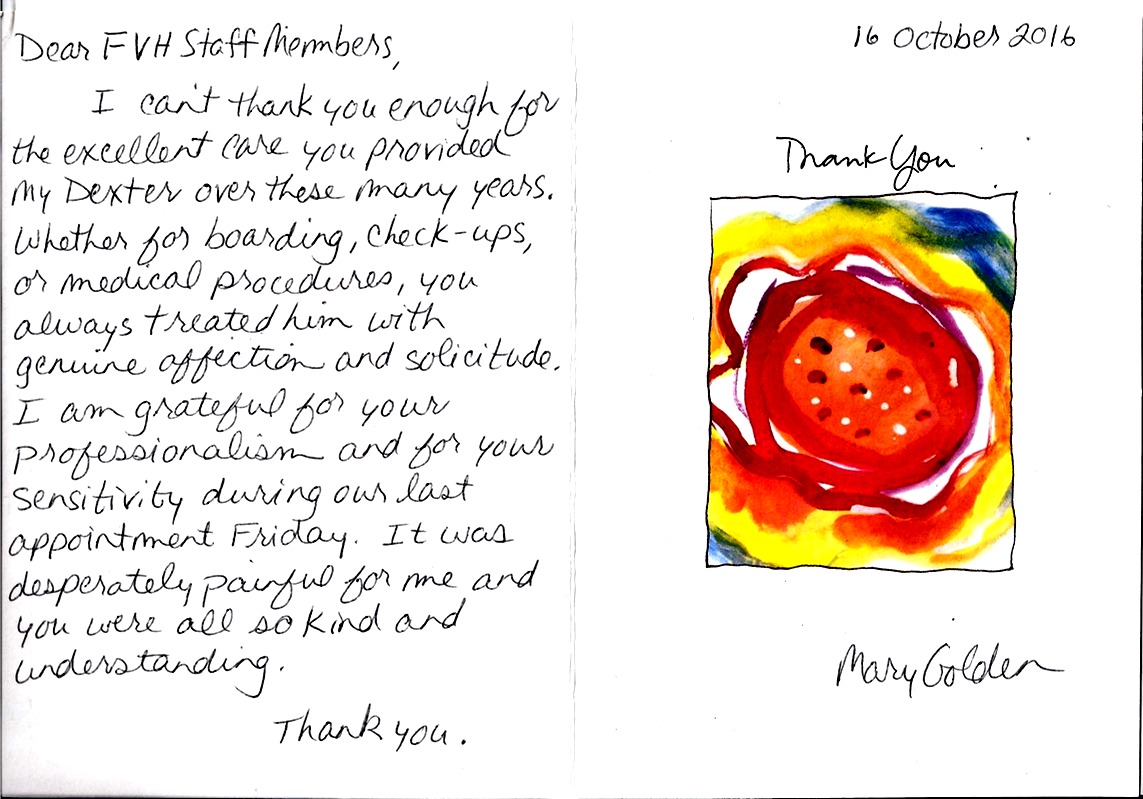 Dear FVH Staff Members,
I can't thank you enough for
the excellent care you provided
my Dexter over these many years.
Whether for boarding, check-ups,
or medical procedures, you
always treated him with
genuine affection and solicitude.
I am grateful for your
professionalism and for your
sensitivity during our last
appointment Friday. It was
desperately painful for me and
you were all so kind and
understanding.
Thank you.
16 October 2016
Thank You
Mary Golden